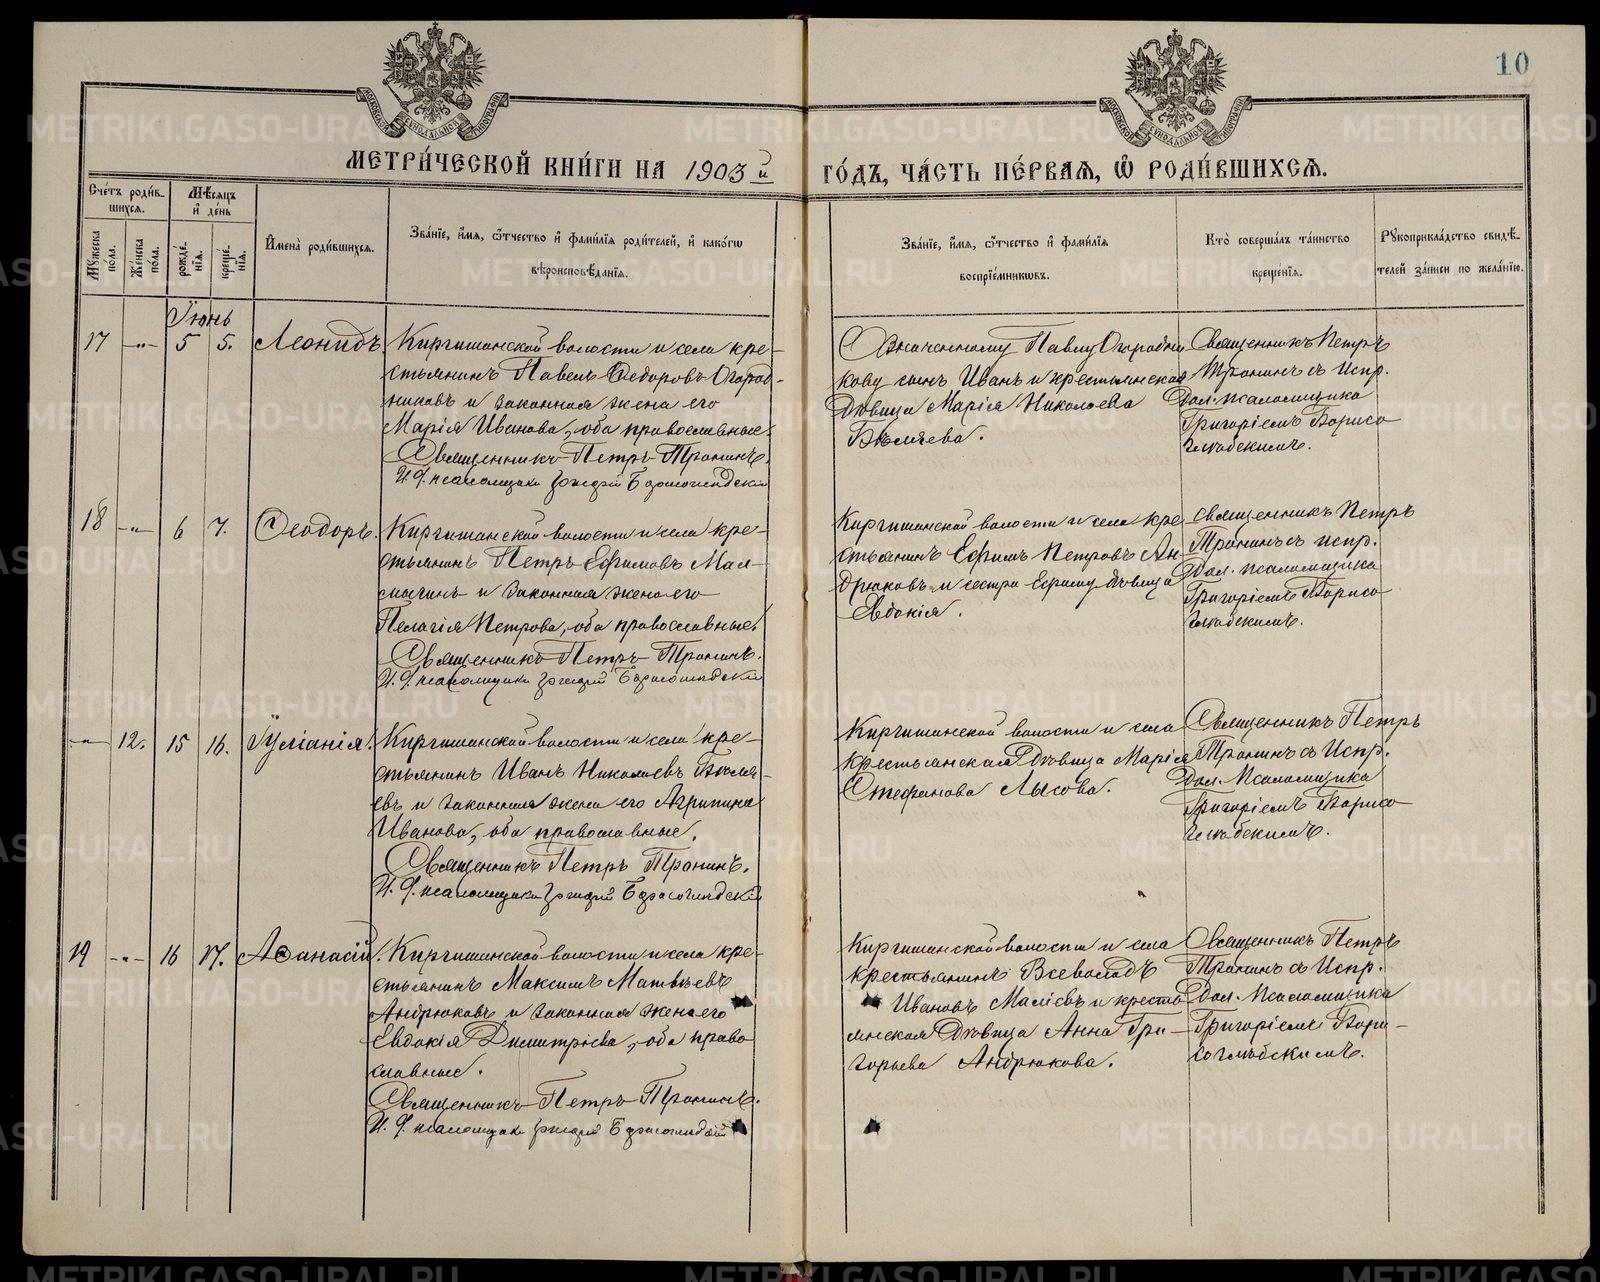 10
МЕТРИ́ЧЕСКОЙ КНИ́ГИ НА 1903 й ГО́ДЪ, ЧА́СТЬ ПЕ́РВАЯ, Ѡ҆ РОДИ́ВШИХСЯ.
Сче́тъ роди́в-
шихся.
Мѣ́сяцъ
и҆ де́нь
Мꙋ́жеска
по́ла.
Же́нска
по́ла.
рожде́-
нїя.
креще́-
нїя.
И҆мена̀ роди́вшихся.
Зва́нїе, и҆́мя, ѻ҆́тчество и҆ фами́лїя роди́телей, и҆ како́гѡ
вѣроисповѣ́данїя.
Зва́нїе, и҆́мя, ѻ҆́тчество и҆ фами́лїя
воспрїе́мникѡвъ.
Кто̀ соверша́лъ та́инство
креще́нїя.
Рꙋкоприкла́дство свидѣ́-
телей за́писи по жела́нїю.
Іюнь
17 -"- 5 5. Леонидъ.
Киргишанской волости и села кре-
стьянинъ Павелъ Ѳедоровъ Огород-
никовъ и законная жена его
Марія Иванова, оба православные.
Священникъ Петръ Тронинъ.
И. д. псаломщика Григорій Борисоглебскій
Означенному Павлу Огородни
кову сынъ Иванъ и крестьянская
Дѣвица Марія Николаева
Бѣляева.
Священникъ Петръ
Тронинъ съ Испр.
Дол. псаломщика
Григоріемъ Борисо
глѣбскимъ.
18 -"- 6 7. Ѳеодоръ.
Киргишанской волости и села кре-
стьянинъ Петръ Ефимовъ Мал-
мыгинъ и законная жена его
Пелагія Петрова, оба православные.
Священникъ Петръ Тронинъ.
И. д. псаломщика Григорій Борисоглебскій
Киргишанской волости и села кре-
стьянинъ Ефимъ Петровъ Ан-
дрюковъ и сестра Ефиму дѣвица
Евдокія.
Священникъ Петръ
Тронинъ съ испр.
Дол. псаломщика
Григоріемъ Борисо
глѣбскимъ.
-"- 12. 15 16. Іуліанія.
Киргишанской волости и села кре-
стьянинъ Иванъ Николаевъ Бѣля-
евъ и законная жена его Агрипина
Иванова, оба православные.
Священникъ Петръ Тронинъ.
И. д. псаломщика Григорій Борисоглебскій
Киргишанской волости и села
крестьянская Дѣвица Марія
Стефанова Лысова.
Священникъ Петръ
Тронинъ съ Испр.
Дол. Псаломщика
Григоріемъ Борисо
глѣбскимъ.
19 -"- 16 17. Аѳанасій.
Киргишанской волости и села кре-
стьянинъ Максимъ Матвѣевъ
Андрюковъ и законная жена его
Евдокія Димитріева, оба право
славные.
Священникъ Петръ Тронинъ.
И. д. псаломщика Григорій Борисоглебскій
Киргишанской волости и села
крестьянинъ Всеволодъ
Ивановъ Маліевъ и кресть
янская Дѣвица Анна Гри-
горьева Андрюкова.
Священникъ Петръ
Тронинъ съ Испр.
Дол. Псаломщика
Григоріемъ Бори-
соглѣбскимъ.
METRIKI.GASO-URAL.RU